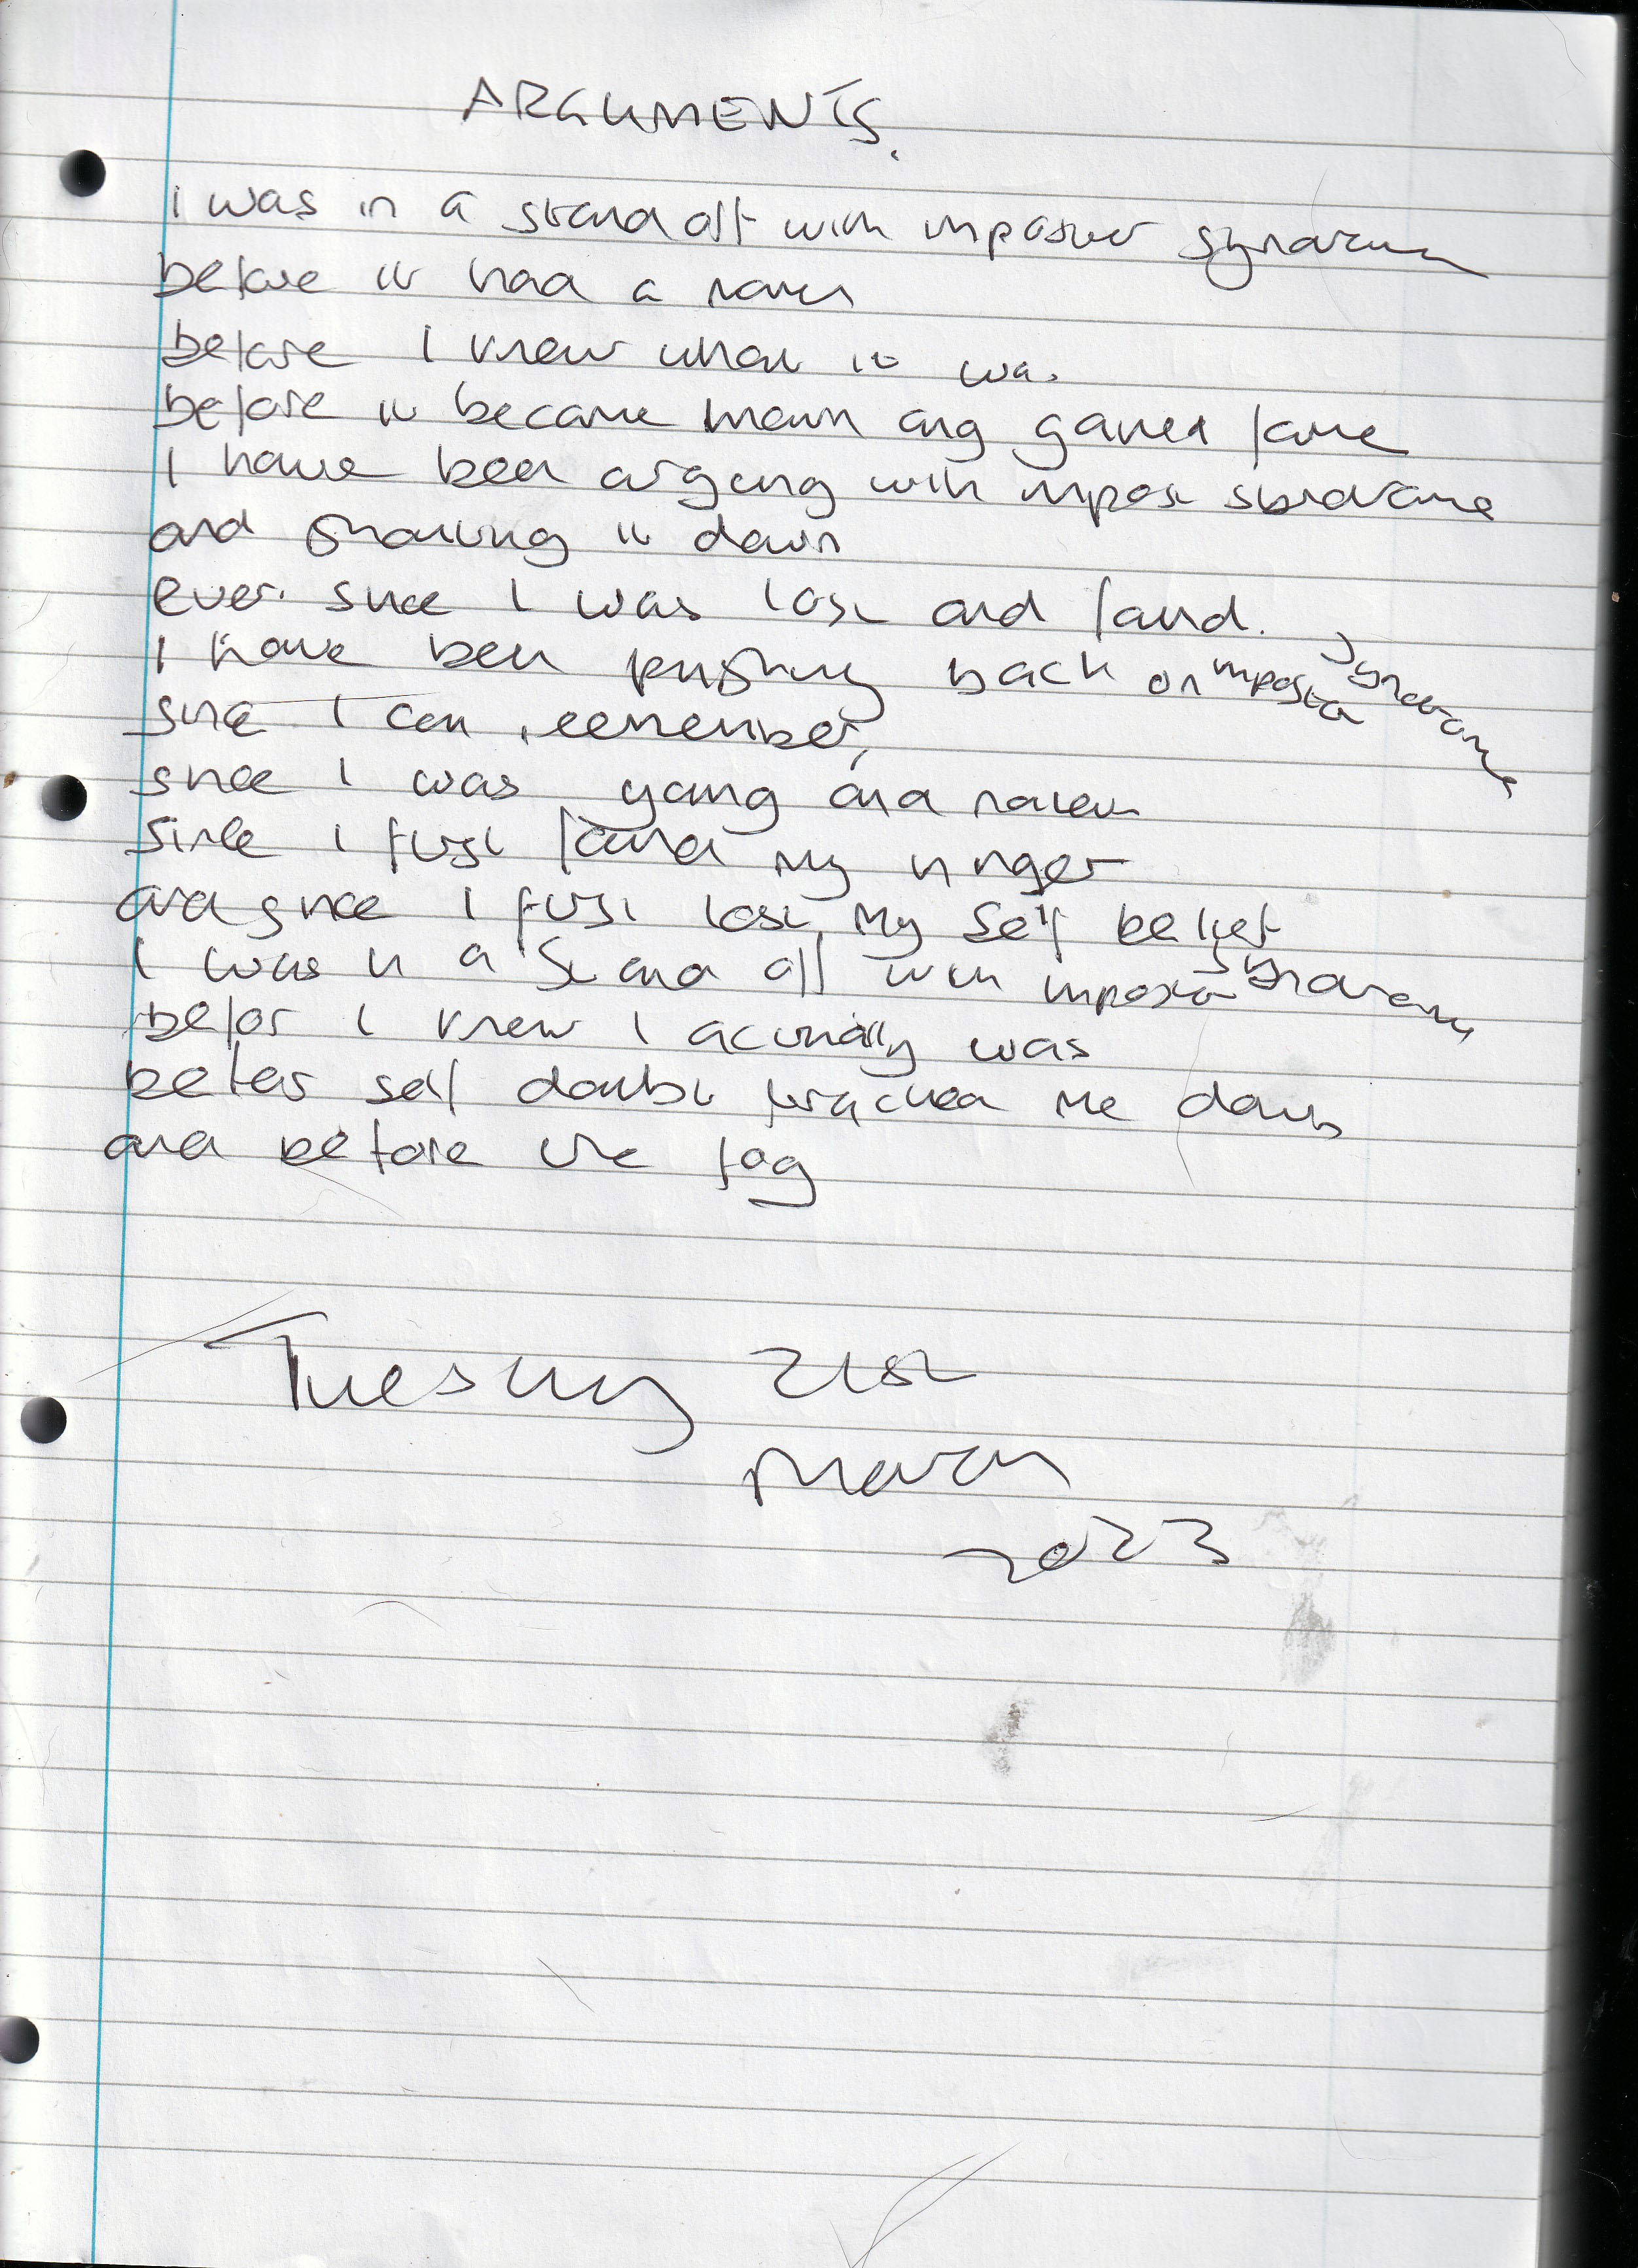 ARGUMENTS.
I was in a stand off with imposter syndrome
before it had a name
before I knew what it was
before it became known and gained fame
I have been arguing with imposter syndrome
and shouting it down
ever since I was lost and found.
I have been pushing back on imposter syndrome
since I can remember,
since I was young and naive
since I first found my
and since I first lost my self belief
I was in a stand off with imposter syndrome
before I knew I actually was
before self doubt tracked me down
and before the fog
Tuesday 21st
March
2023